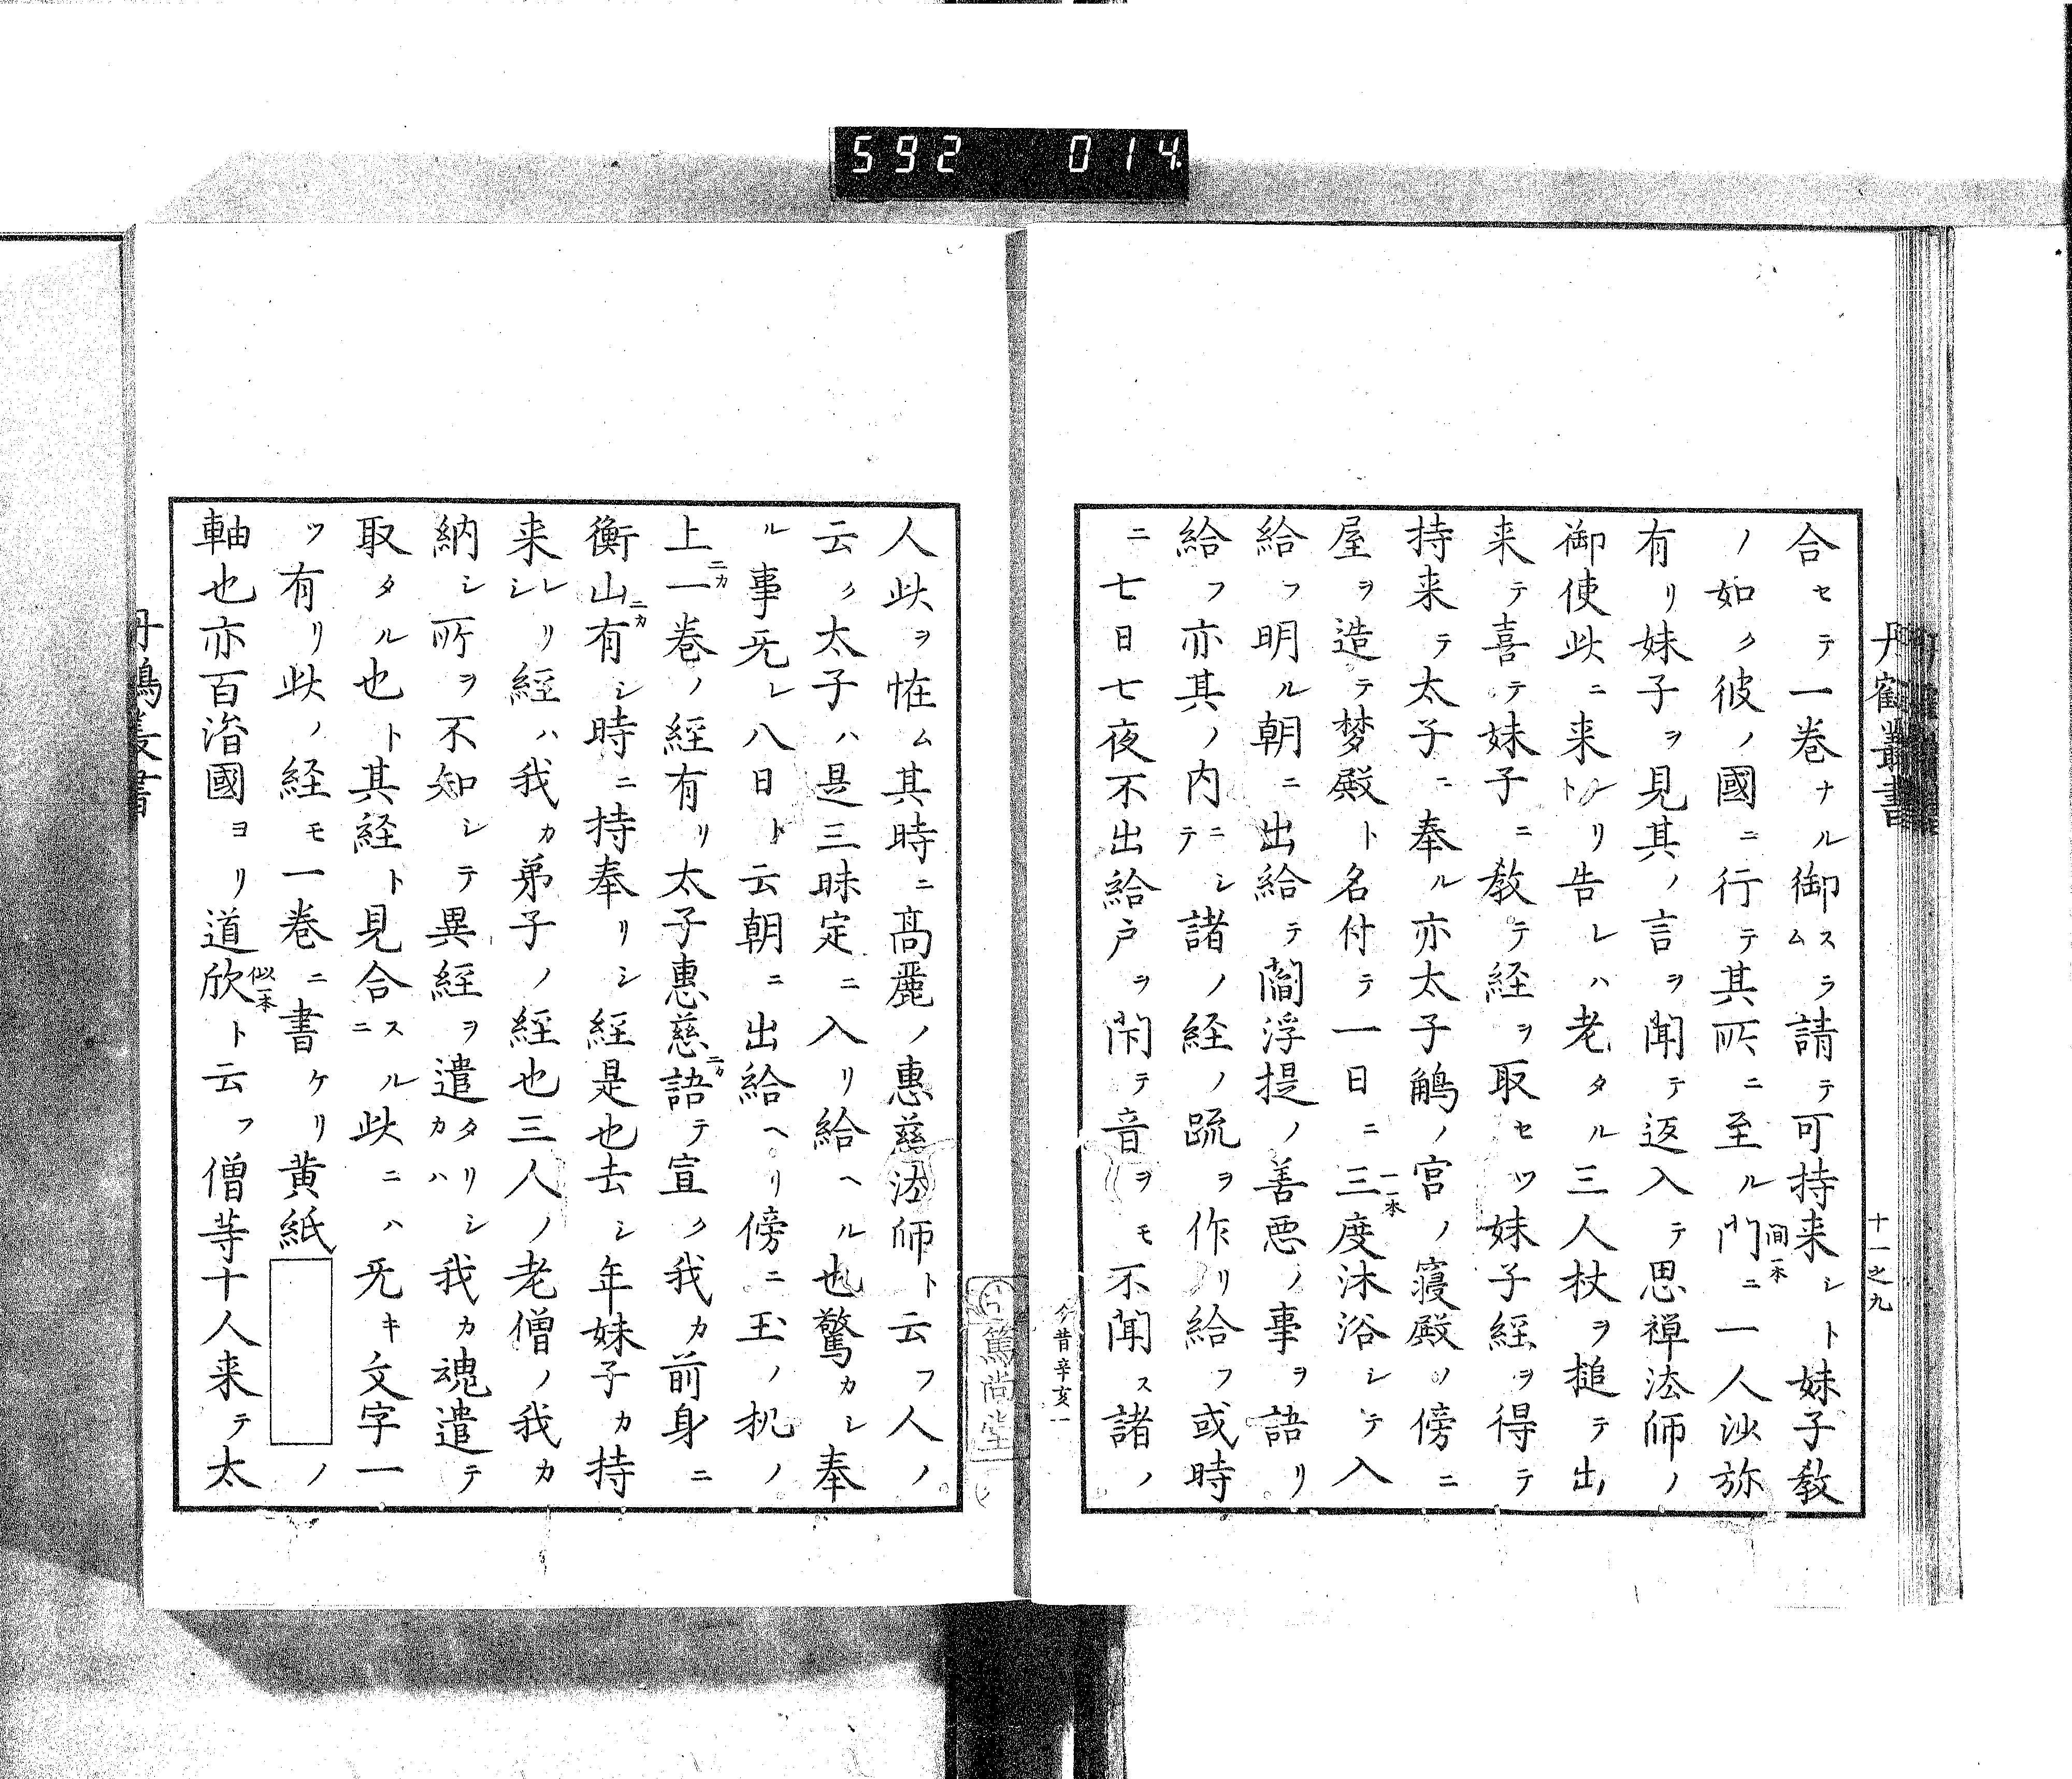 592 014
丹鶴叢書
十一之九
合セテ一巻ナル御スラム請テ可持来シト妹子教
ノ如ク彼ノ國ニ行テ其所ニ至ル門間一本ニ一人沙弥
有リ妹子ヲ見其ノ言ヲ聞テ返入テ思禅法師ノ
御使此ニ来レリト告レハ老タル三人杖ヲ槌テ出
来テ喜テ妹子ニ教テ経ヲ取セツ妹子經ヲ得テ
持来テ太子ニ奉ル亦太子鵤ノ宮ノ寝殿ノ傍ニ
屋ヲ造テ梦殿ト名付テ一日ニ三一本度沐浴シテ入
給フ明ル朝ニ出給テ閻浮提ノ善悪ノ事ヲ語リ
給フ亦其ノ内ニシテ諸ノ経ノ䟽ヲ作リ給フ或時
ニ七日七夜不出給戸ヲ閇テ音ヲモ不聞ス諸ノ
今昔辛亥一
篤尚堂
人此ヲ恠ム其時ニ髙麗ノ惠慈法師ト云フ人ノ
云ク太子ハ是三昧定ニ入リ給ヘル也驚カレ奉
ル事旡レ八日ト云朝ニ出給ヘリ傍ニ玉ノ机ノ
上ニカ一巻ノ經有リ太子惠慈ニカ語テ宣ク我カ前身ニ
衡山ニカ有シ時ニ持奉リシ経是也去シ年妹子カ持
来レリシ經ハ我カ弟子ノ經也三人ノ老僧ノ我カ
納シ所ヲ不知シテ異經ヲ遣タリシカハ我カ魂遣テ
取タル也ト其経ト見合スルニ此ニハ旡キ文字一
ツ有リ此ノ経モ一巻ニ書ケリ黄紙 ノ
軸也亦百濟國ヨリ道欣似一本ト云フ僧等十人来テ太
丹鶴叢書